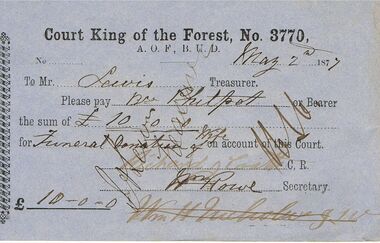 Court King of the Forest, No. 3770,
A. O. F., B. U. D.
No May 2nd 1877
To Mr. Lewis Treasurer.
Please pay Bro Philpot or Bearer
the sum of £ 10-0-0
for Funeral Donation on account of this Court.
C. R.
Wm Rowe Secretary.
£ 10-0-0